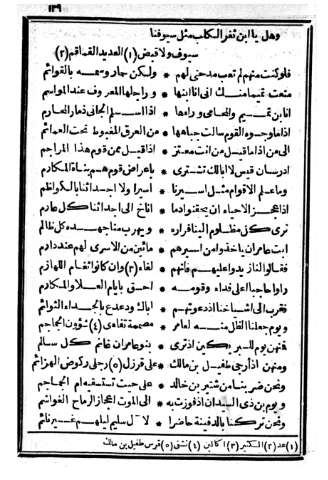 وهل يا ابن ثفر الكلب مثل سيوفنا
سيوف ولا قبض (١) العديد القماقم (٢)
فلو كنت منهم لم تعب مدحتى لهم ولكن حمار وشيه بالقوائم
منعت تميما منك انى انا ابنها وراحلها المعروف عند المواسم
انا ابن تميم والمحامى وراءها اذا اسلم الجانى ذمار المحارم
اذا ما وجوه القوم سالت جباهها من العرق المغبوط تحت العمائم
الى من اذا ما قيل من انت معتز اذا قيل ممن قوم هذا المراجم
ادرسان قيس لا ابالك تشترى باعراض قوم هم بناة المكارم
وما علم الاقوام مثل اسيرنا اسيرا ولا اجدائنا بالكواظم
اذا عجز الاحياء ان يحملوا دما اناخ الى اجداثنا كل غارم
ترى كل مظلوم الينا فراره ويهرب منا جهده كل ظالم
ابت عامر ان ياخذوا من اسيرهم مائين من الاسرى لهم عند دارم
فقالوا لنا زيدوا عليهم فانهم لغاء (٣) وان كانوا ثغام اللهازم
راوا حاجبا اعلى فداء وقومه احق بايام العلا والمكارم
فقرب الى اشياخنا اذ دعوتهم اباك ودعدع بالجداء التوائم
ويوم جعلنا الظل منه لعامر مصممة تفاى (٤) شؤون الجماجم
فمنهن يوم للبريكين اذ ترى بنو عامر ان غانم كل سالم
ومنهن اذ ارخى طفيل بن مالك على قرزل (٥) رجلى ركوض الهزائم
ونحن ضربنا من شتير بن خالد على حيث تستسقيه ام الجماجم
ويوم ابن ذى السيدان اذ فوزت به الى الموت اعجاز الرماح الغواشم
ونحن تركنا بالدفينة حاضرا لآل سليم ليلهم غير نائم
(١) عد (٢) الكثير (٣) اى كا (٤) تشق (٥) فرس طفيل بن مالك